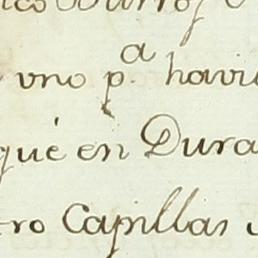 uno p.ª havi
que en Dura
ro Capillas